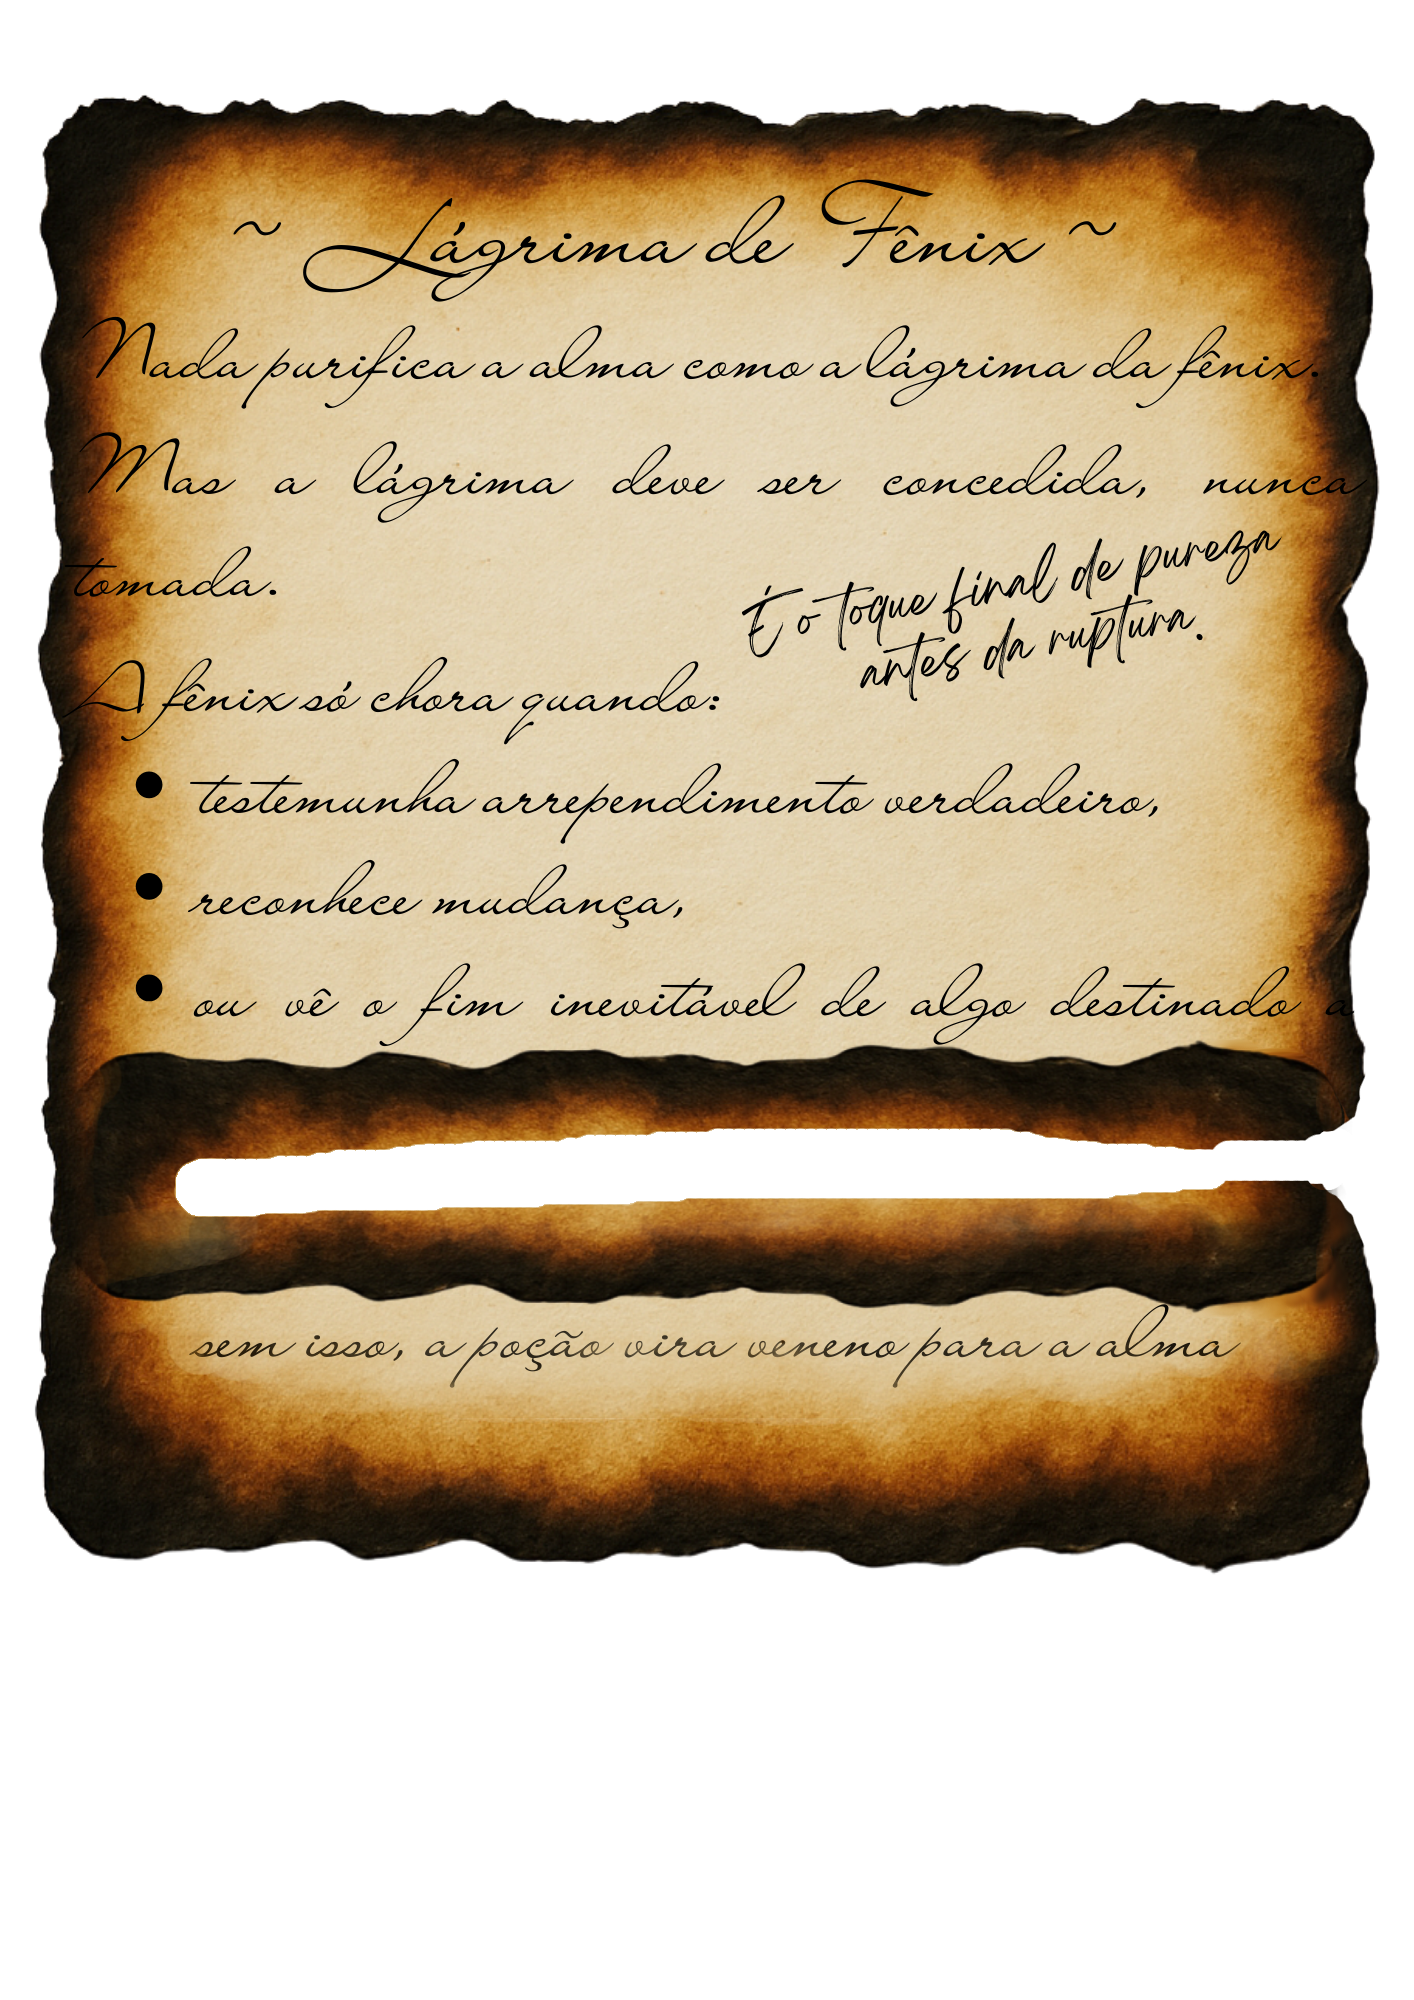 ~ Lágrima de Fênix ~
Nada purifica a alma como a lágrima da fênix.
Mas a lágrima deve ser concedida, nunca
tomada.
É o toque final de pureza
antes da ruptura.
A fênix só chora quando:
• testemunha arrependimento verdadeiro,
• reconhece mudança,
• ou vê o fim inevitável de algo destinado a
sem isso, a poção vira veneno para a alma